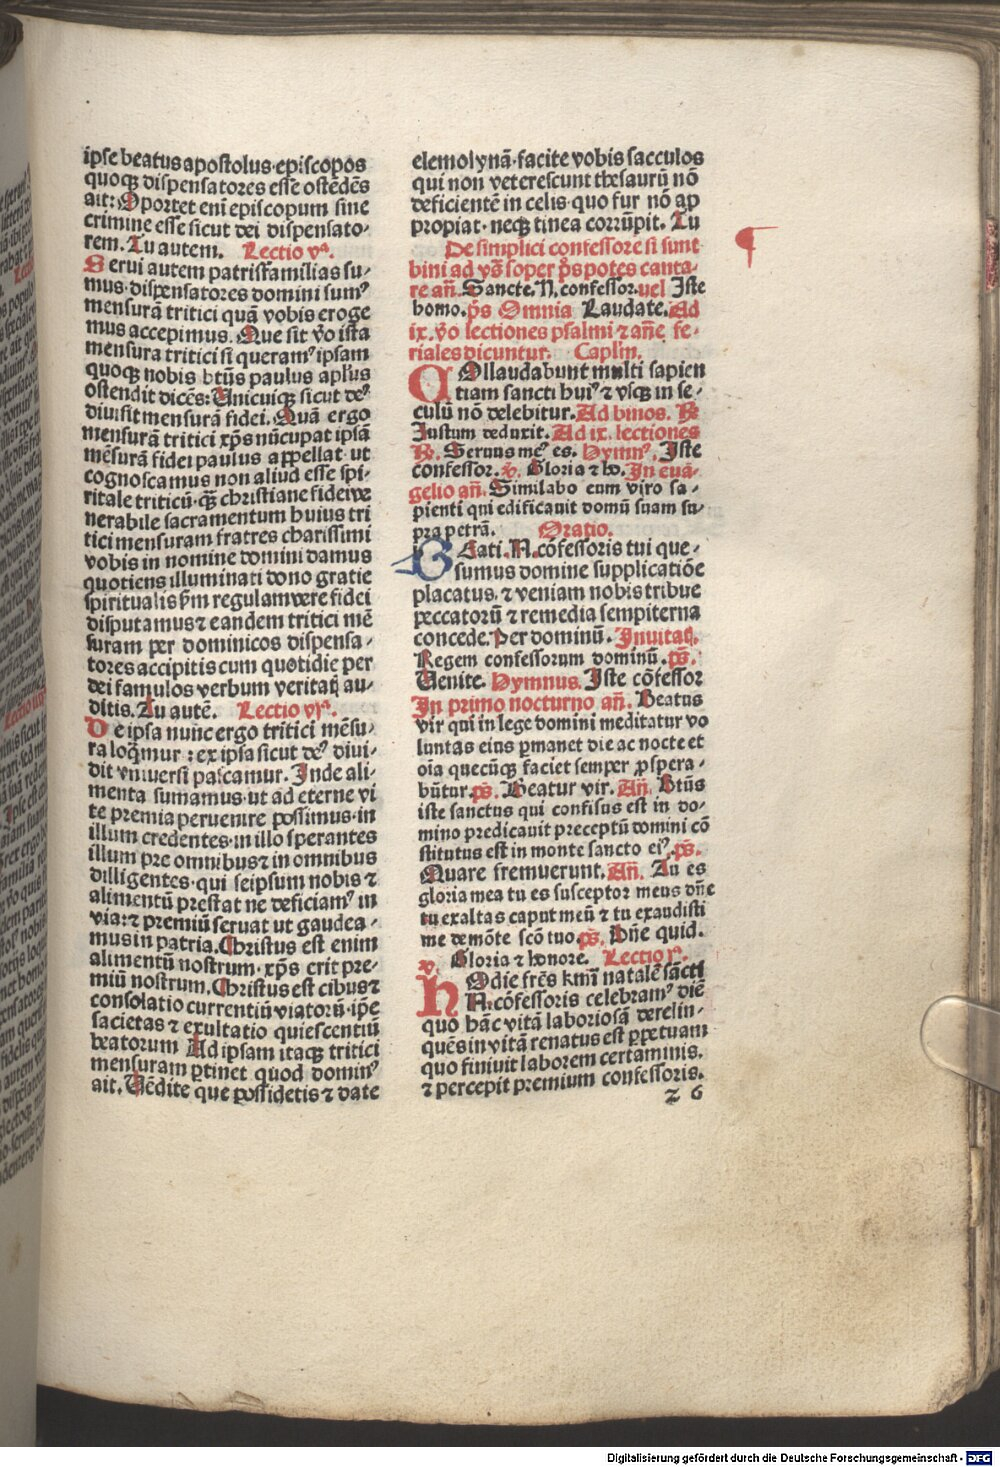 ipse beatus apostolus·episcopos
quoqꝫ dispensatores esse ostēdēs
ait: Oportet eni episcopum sine
crimine esse sicut dei dispensato-
rem. Tu autem. Lectio vª.
Serui autem patrisfamilias su-
mus·dispensatores domini sumꝰ
mensurā tritici quā vobis eroge
mus accepimus. Que sit ṽo ista
mensura tritici si queramꝰ ipsam
quoqꝫ nobis btūs paulus apl'us
ostendit dicēs: Unicuiqꝫ sicut deꝰ
diuisit mensurā fidei. Quā ergo
mensurā tritici xp̄s nūcupat ipsā
mēsurā fidei paulus appellat·ut
cognoscamus non aliud esse spi-
ritale triticū·qꝫ christiane fidei ve
nerabile sacramentum huius tri
tici mensuram fratres charissimi
vobis in nomine domini damus
quotiens illuminati dono gratie
spiritualis s̄m regulam vere fidei
disputamus ⁊ eandem tritici mē
suram per dominicos dispensa-
tores accipitis cum quotidie per
dei famulos verbum veritatꝭ au-
ditis. Tu autē. Lectio vjª.
De ipsa nunc ergo tritici mēsu-
ra loq̄mur : ex ipsa sicut deꝰ diui-
dit vniuersi pascamur. Inde ali-
menta sumamus·ut ad eterne vi
te premia peruenire possimus·in
illum credentes·in illo sperantes
illum pre omnibus ⁊ in omnibus
dilligentes·qui seipsum nobis ⁊
alimentū prestat ne deficiamꝰ in
via: ⁊ premiū seruat ut gaudea-
mus in patria. Christus est enim
alimentū nostrum·xp̄s erit pre-
miū nostrum. Christus est cibus ⁊
consolatio currentiū viatorū·ip̄e
sacietas ⁊ exultatio quiescentiū
beatorum Ad ipsam itaqꝫ tritici
mensuram ꝑtinet quod dominꝰ
ait. Uēdite que possidetis ⁊ date
elemosynā·facite vobis sacculos
qui non veterescunt thesaurū nō
deficientē in celis·quo fur nō ap
propiat·neqꝫ tinea corrūpit. Tu
De simplici confessore si sunt
bini ad vs̄ꝰ soper ps̄potes canta-
re an̄. Sancte. N. confessor. uel Iste
homo. ps̄ Omnia Laudate. Ad
ix. ṽo lectiones psalmi ⁊ an̄e fe-
riales dicuntur. Caplm̄.
COllaudabunt multi sapien
tiam sancti huiꝰ ⁊ vsqꝫ in se-
culū nō delebitur. Ad binos. ℞
Iustum deduxit. Ad ix. lectiones
℞. Seruus meꝰ es. Hymnꝰ. Iste
confessor. ℣. Gloria ⁊ ho. In euā-
gelio an̄. Similabo eum viro sa-
pienti qui edificauit domū suam su-
pra petrā. Oratio.
BEati. N. cōfessoris tui que-
sumus domine supplicatiōe
placatus. ⁊ veniam nobis tribue
peccatorū ⁊ remedia sempiterna
concede. Per dominū. Inuitat̄.
Regem confessorum dominū. ps̄.
Uenite. Hymnus. Iste cōfessor
In primo nocturno an̄. Beatus
vir qui in lege domini meditatur vo
luntas eius ꝑmanet die ac nocte et
oīa quecūqꝫ faciet semper ꝓspera-
būtur. ps̄. Beatur vir. An̄. Btūs
iste sanctus qui confisus est in do-
mino predicauit preceptū domini cō
stitutus est in monte sancto eiꝰ. ps̄.
Quare fremuerunt. An̄. Tu es
gloria mea tu es susceptor meus dn̄e
tu exaltas caput meū ⁊ tu exaudisti
me de mōte scō tuo. ps̄. Dn̄e quid.
℣. Gloria ⁊ honore. Lectio jª.
HOdie frēs kmī natalē sācti
N. cōfessoris celebramꝰ diē
quo hāc vitā laboriosā derelin-
quēs in vitā renatus est ꝑpetuam
quo finiuit laborem certaminis.
⁊ percepit premium confessoris.
z 6
Digitalisierung gefördert durch die Deutsche Forschungsgemeinschaft - DFG